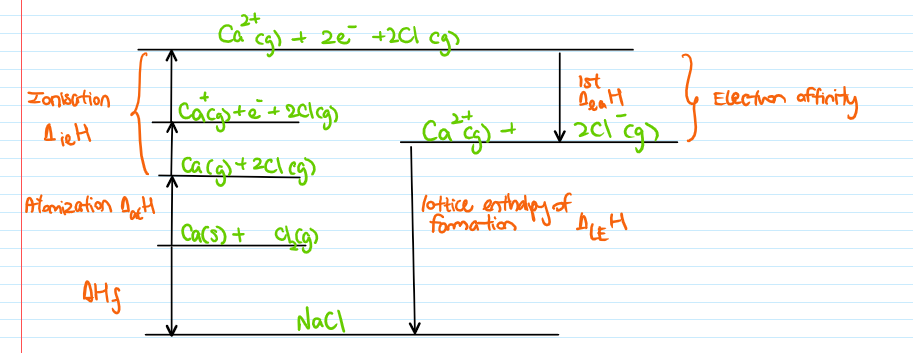 Ca²⁺(g) + 2e⁻ +2Cl (g)
Ionisation
Δ_ie H
1st
Δ_ea H
Electron affinity
Ca⁺(g)+e⁻+2Cl(g)
Ca²⁺(g) + 2Cl⁻(g)
Ca(g)+2Cl(g)
Atomization Δ_at H
lattice enthalpy of
formation Δ_LE H
Ca(s) + Cl₂(g)
ΔHf
NaCl